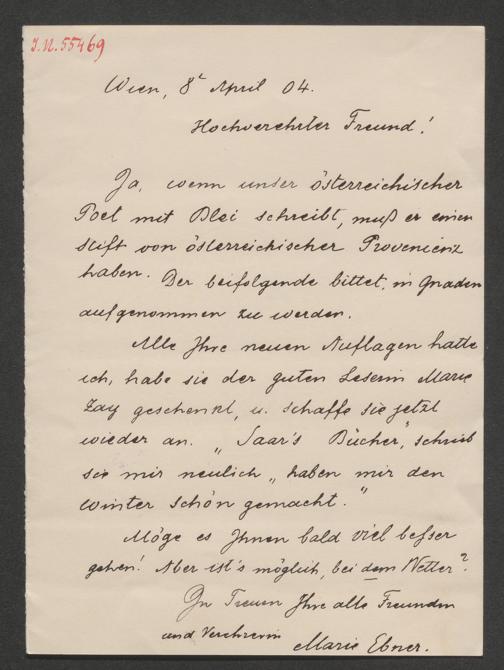 J.N. 55469
Wien, 8t April 04.
Hochverehrter Freund!
Ja, wenn unser österreichischer
Poet mit Blei schreibt, muß er einen
Stift von österreichischer Provenienz
haben. Der beifolgende bittet, in Gnaden
aufgenommen zu werden.
Alle Ihre neuen Auflagen hatte
ich, habe sie der guten Leserin Marie
Zay geschenkt, u. schaffe sie jetzt
wieder an. „Saar's Bücher", schrieb
sie mir neulich „haben mir den
Winter schön gemacht."
Möge es Ihnen bald viel besser
gehen! Aber ist's möglich, bei dem Wetter?
In Treuen Ihre alte Freundin
und Verehrerin
Marie Ebner.